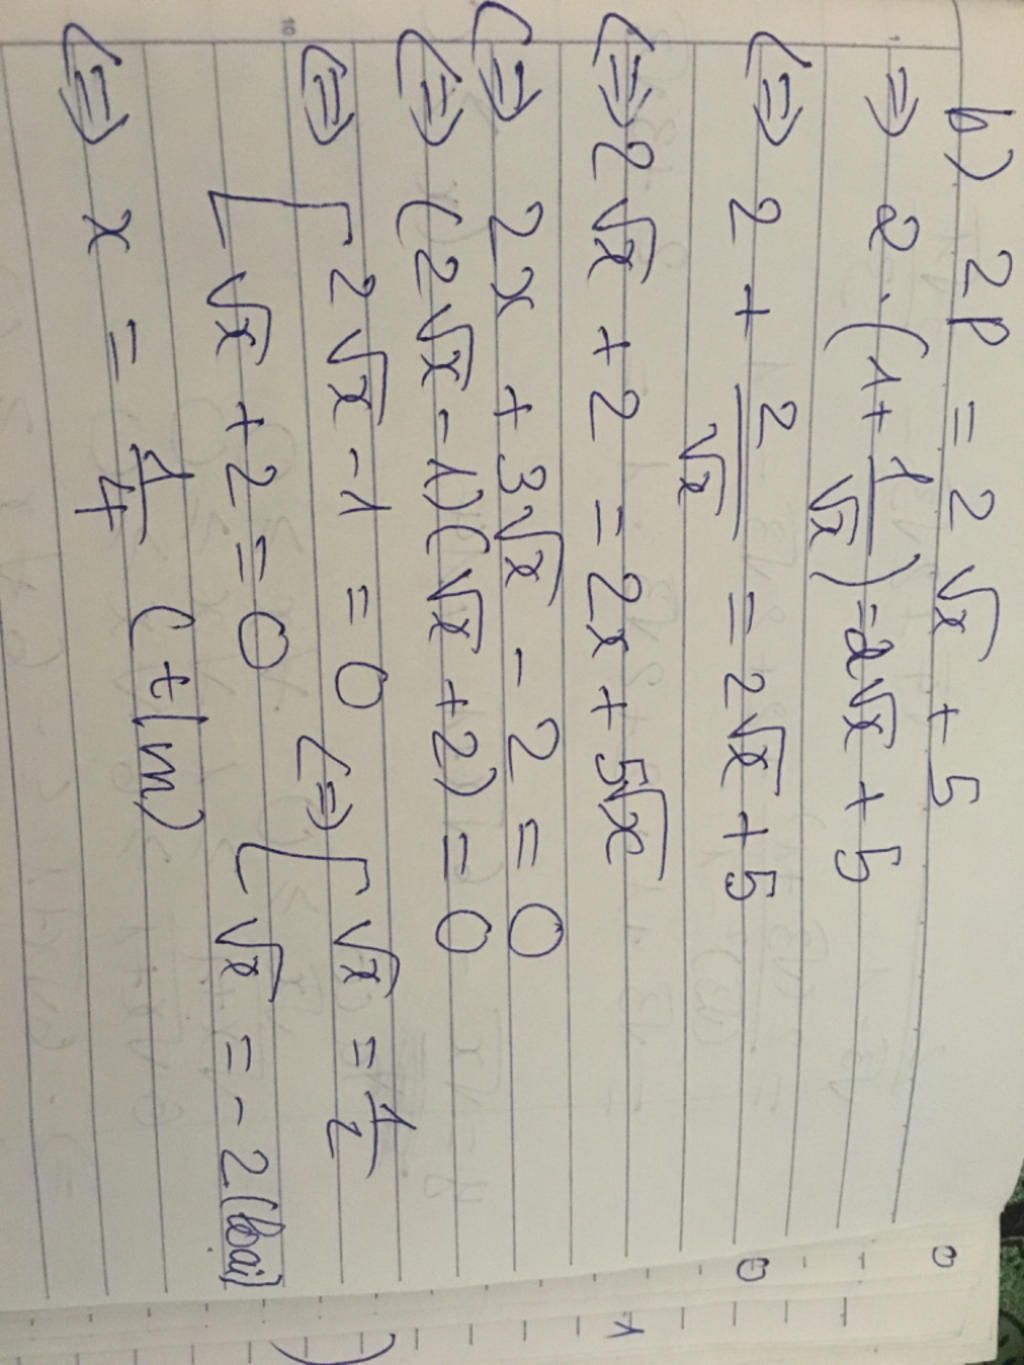 b) 2P = 2√x + 5
=> 2.(1 + 1/√x) = 2√x + 5
<=> 2 + 2/√x = 2√x + 5
<=> 2√x + 2 = 2x + 5√x
<=> 2x + 3√x - 2 = 0
<=> (2√x - 1)(√x + 2) = 0
<=> [ 2√x - 1 = 0 <=> [ √x = 1/2
[ √x + 2 = 0 [ √x = -2 (loại)
<=> x = 1/4 (t/m)